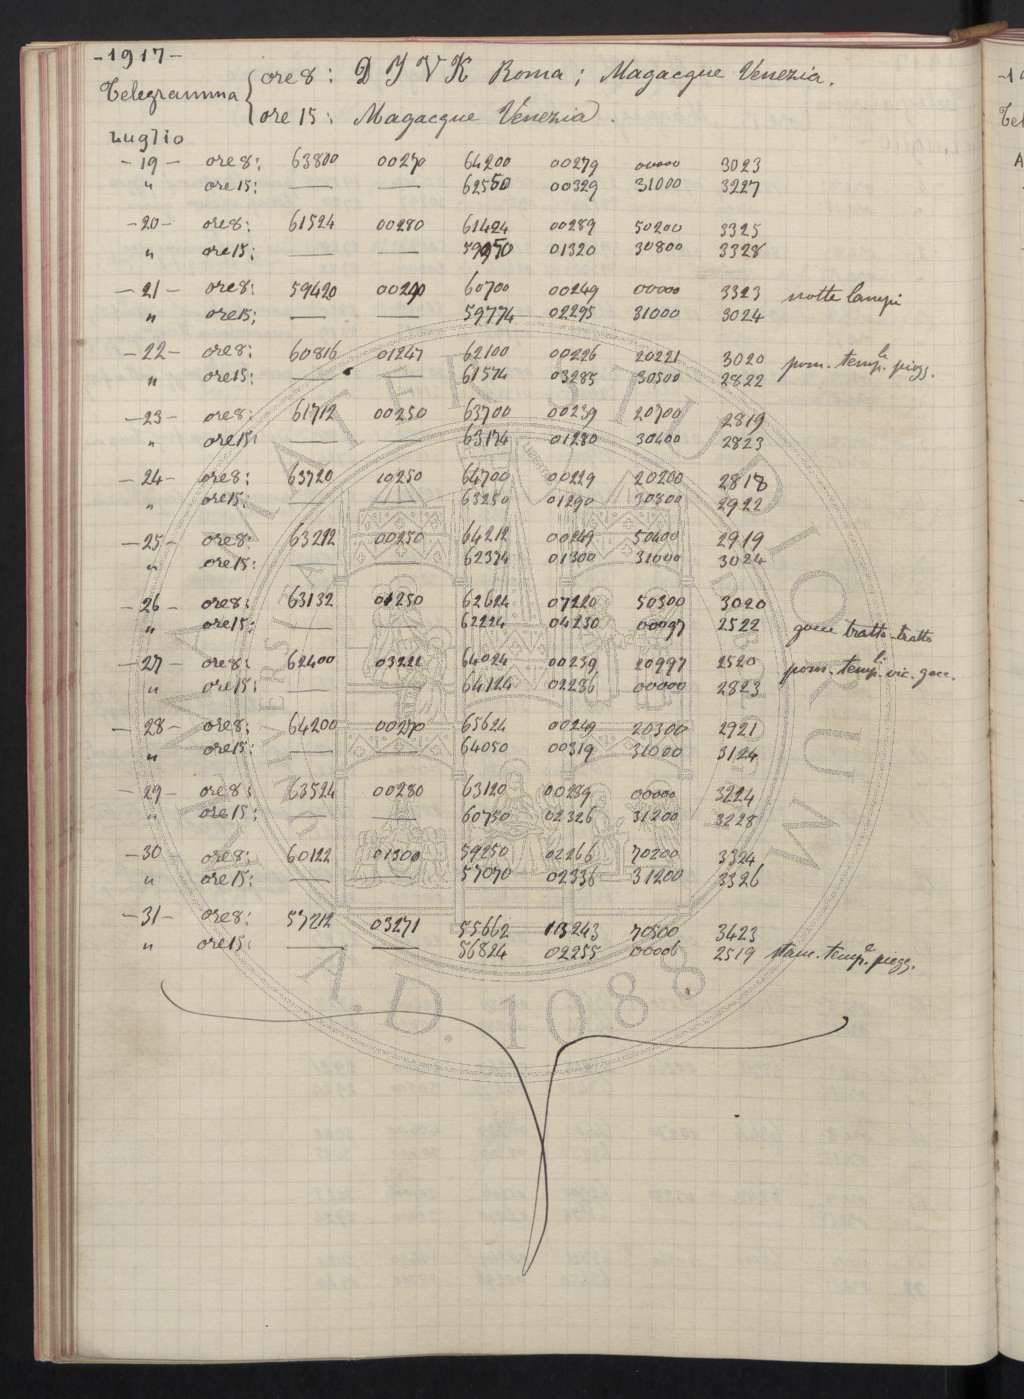 -1917-
Telegramma { ore 8: D J V K Roma; Magacque Venezia.
ore 15: Magacque Venezia.
Luglio
-19- ore 8: 63800 00270 64200 00279 00000 3023
" ore 15: — — 62550 00329 31000 3227
-20- ore 8: 61524 00280 61424 00289 50200 3325
" ore 15: — — 59950 01320 30800 3328
-21- ore 8: 59420 00290 60700 00249 00000 3323 notte lampi
" ore 15: — — 59774 02295 31000 3024
-22- ore 8: 60816 01247 62100 00226 20221 3020 pom. temp.le piogg.
" ore 15: — — 61574 03285 30500 2822
-23- ore 8: 61712 00250 63700 00239 20700 2819
" ore 15: — — 63174 01280 30400 2823
-24- ore 8: 63720 10250 64700 00229 20200 2818
" ore 15: — — 63250 01290 30300 2922
-25- ore 8: 63212 00250 64212 00249 50400 2919
" ore 15: — — 62374 01300 31000 3024
-26- ore 8: 63132 01250 62624 07220 50300 3020
" ore 15: — — 62224 04230 00097 2522 gocce tratto-tratto
-27- ore 8: 62400 03222 64024 00239 20997 2520 pom. temp.li vic. gocc.
" ore 15: — — 64124 02286 00000 2823
-28- ore 8: 64200 00270 65624 00249 20300 2921
" ore 15: — — 64050 00319 31000 3124
-29- ore 8: 63524 00280 63120 00239 00000 3224
" ore 15: — — 60750 02326 31200 3228
-30- ore 8: 60122 01300 59250 02266 70200 3324
" ore 15: — — 57070 02336 31200 3326
-31- ore 8: 57212 03271 55662 13243 70500 3423
" ore 15: — — 56824 02255 00006 2519 stam. temp.e piogg.
ALMA MATER STUDIORUM
A.D. 1088